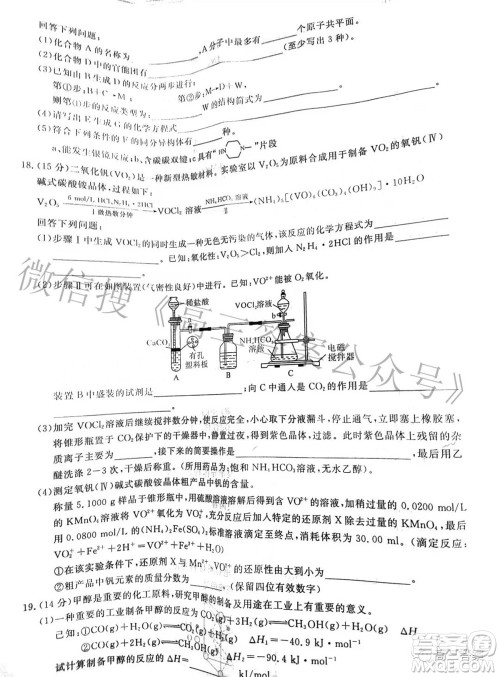 回答下列问题:
(1)化合物 A 的名称为________,A 分子中最多有________个原子共平面。
(2)化合物 D 中的官能团有________(至少写出 3 种)。
(3)已知由 B 生成 D 的反应分两步进行:
第①步:B+C→M;第②步:M→D+W,
则第①步的反应类型为:________,W 的结构简式为________。
(4)请写出 E 生成 G 的化学方程式________。
(5)符合下列条件的 F 的同分异构体有________种。
a.能发生银镜反应 b.含碳碳双键 c.具有 HN NH 片段
18.(15 分)二氧化钒(VO₂)是一种新型热敏材料。实验室以 V₂O₅ 为原料合成用于制备 VO₂ 的氧钒(Ⅳ)
碱式碳酸铵晶体,过程如下:
V₂O₅ 6 mol/L HCl、N₂H₄·2HCl Ⅰ 微热数分钟 → VOCl₂ 溶液 NH₄HCO₃溶液 Ⅱ → (NH₄)₅[(VO)₆(CO₃)₄(OH)₉]·10H₂O
回答下列问题:
(1)步骤Ⅰ中生成 VOCl₂ 的同时生成一种无色无污染的气体,该反应的化学方程式为
________。已知:V₂O₅>Cl₂,则加入 N₂H₄·2HCl 的作用是
________。
(2)步骤Ⅱ可在如图装置(气密性良好)中进行。已知:VO²⁺能被O₂氧化。
稀盐酸
VOCl₂溶液
CaCO₃
有孔塑料板
NH₄HCO₃溶液
电磁搅拌器
A B C
装置 B 中盛装的试剂是________;向 C 中通入 CO₂ 的作用是
________。
(3)加完 VOCl₂ 溶液后继续搅拌数分钟,使反应完全,小心取下分液漏斗,停止通气,立即塞上橡胶塞,
将锥形瓶置于 CO₂ 保护下的干燥器中,静置过夜,得到紫色晶体,抽滤。此时紫色晶体上残留的杂
质离子主要为________,接下来的简要操作是________,最后用乙
醚洗涤 2-3 次,干燥后称重。(所用药品为:饱和 NH₄HCO₃ 溶液,无水乙醇)。
(4)测定氧钒(Ⅳ)碱式碳酸铵晶体粗产品中钒的含量。
称量 5.1000 g 样品于锥形瓶中,用硫酸溶液溶解后得到含 VO²⁺的溶液,加入稍过量的 0.0200 mol/L
的 KMnO₄ 溶液将 VO²⁺氧化为 VO₂⁺,充分反应后加入特定的还原剂 X 除去剩余的 KMnO₄,最后
用 0.0800 mol/L (NH₄)₂Fe(SO₄)₂ 标准溶液滴定至终点,消耗标准溶液体积为 30.00 mL。(滴定反应:
VO₂⁺+Fe²⁺+2H⁺=VO²⁺+Fe³⁺+H₂O)
①在该实验条件下,还原剂 X 与 Mn²⁺、VO²⁺的还原性由大到小为________。
②粗产品中钒元素的质量分数为________(保留四位有效数字)
19.(14 分)甲醇是重要的化工原料,研究甲醇的制备及用途在工业上有重要的意义。
(1)一种重要的工业制备甲醇的反应为
已知:①CO(g)+H₂O(g)⇌CO₂(g)+H₂(g) ΔH₁=-40.9 kJ·mol⁻¹
②CO(g)+2H₂(g)⇌CH₃OH(g) ΔH₂=-90.4 kJ·mol⁻¹
试计算制备甲醇的反应的 ΔH=________kJ/mol
微信搜《高三答案公众号》
答案圈